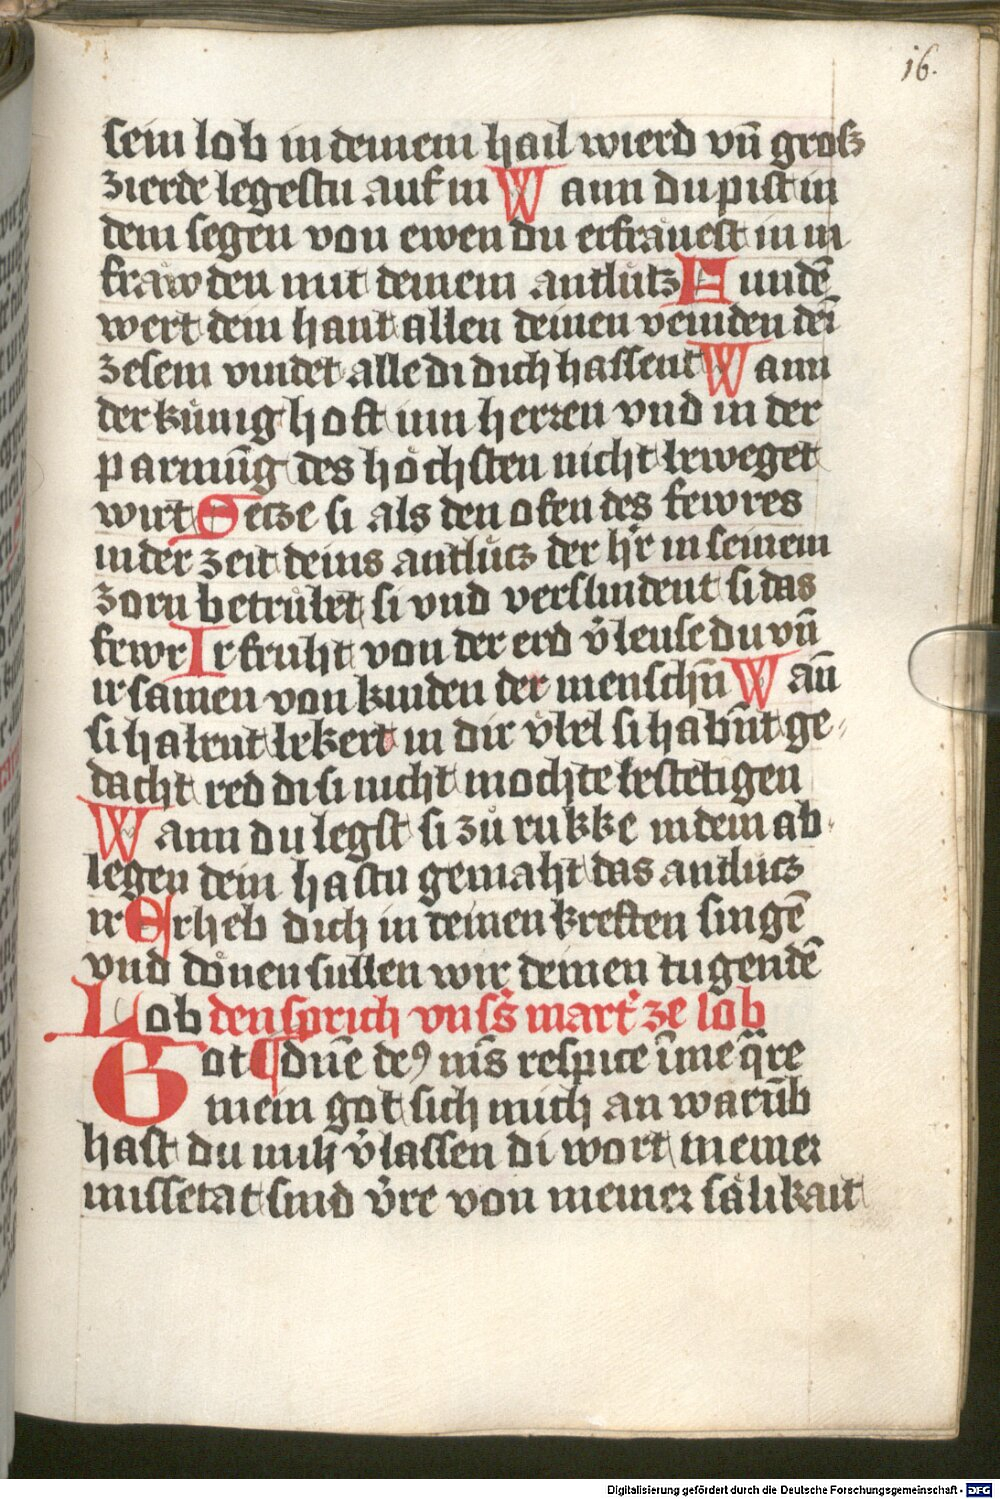 16.
sein lob in deinem hail wierd vn̄ grosz
zierde legestu auf in Wann du pist in
dem segen von ewen du erfråuest in in
fråwden mit deinem antlůtz Funden̄
wert dein hant allen deinen veinden dei̅
zesem vindet alle di dich hassent Wann
der kůnig hoft inn herren vnd in der
parmūg des hȯchsten nicht beweget
wirt Setze si als den ofen des fewres
in der zeit deins antlůcz der h͛r in seinem
zorn betrůbet si vnd verslindent si das
fewr Ir fruht von der erd v͛leuse du vn̄
ir samen von kinden der menschn̄ Wan̄
si habent bekert in dir v̊bel si habn̄t ge⸗
dacht red di si nicht mochte bestetigen
Wann du legst si zů rukke in dein ab⸗
legen dein hastu gemaht das antlucz
ir Erheb dich in deinen kreften singē
vnd dȯnen sullen wir deinen tugendē
Lob den sprich vns͛s mart͛ ze lob
Got ¶ dn̄e deꝯ m̄s respice i̅ me q̄re
mein got sich mich an warūb
hast du mih v͛lassen di wort meiner
missetat sind v͛re von meiner sålikait
Digitalisierung gefördert durch die Deutsche Forschungsgemeinschaft - DFG